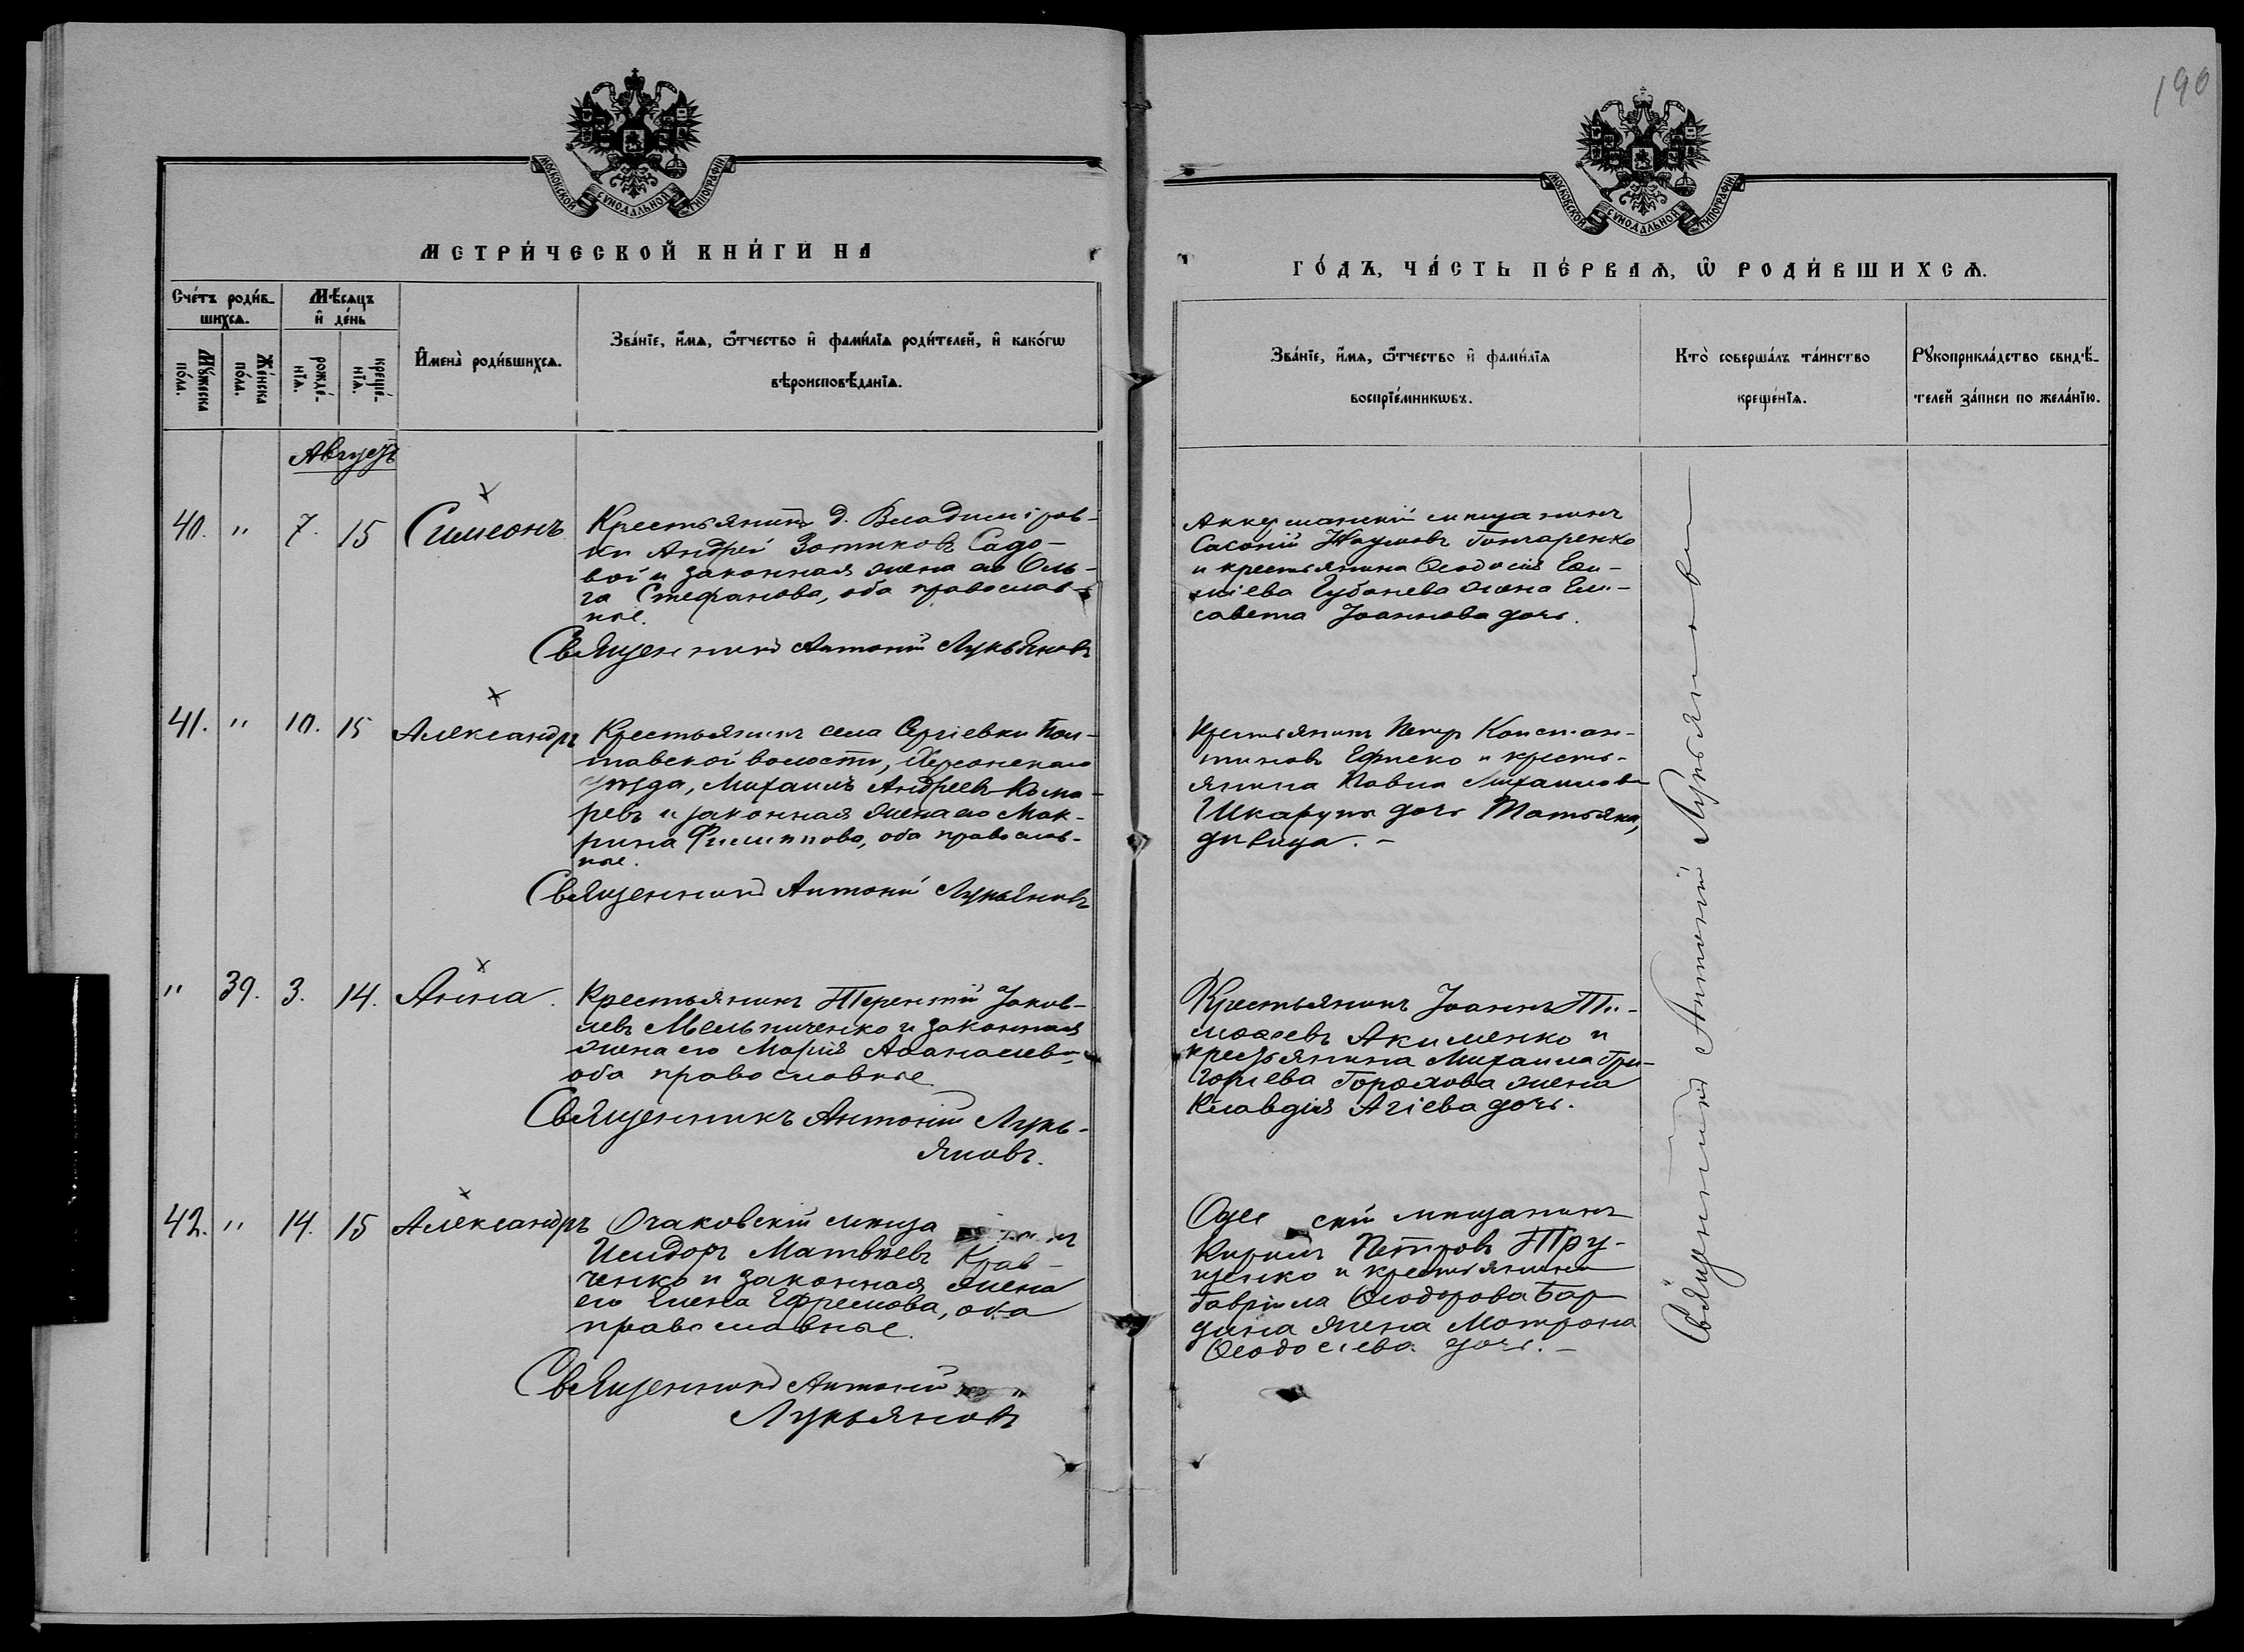 190
МОСКОВСКОЙ СУНОДАЛЬНОЙ ТИПОГРАФІИ
МОСКОВСКОЙ СУНОДАЛЬНОЙ ТИПОГРАФІИ
МЕТРИ́ЧЕСКОЙ КНИ́ГИ НА
ГО́ДЪ, ЧА́СТЬ ПЕ́РВАѦ, Ѽ РОДИ́ВШИХСѦ.
Сче́тъ роди́в-
шихсѧ.
Мꙋ́жеска
по́ла.
Же́нска
по́ла.
Мѣ́сѧцъ
и҆ де́нь
рожде́-
нїѧ.
креще́-
нїѧ.
И҆мена̀ роди́вшихсѧ.
Зва́нїе, и҆́мѧ, ѻ҆́тчество и҆ фами́лїѧ роди́телей, и҆ како́гѡ
вѣроисповѣ́данїѧ.
Зва́нїе, и҆́мѧ, ѻ҆́тчество и҆ фами́лїѧ
воспрїе́мникѡвъ.
Кто̀ соверша́лъ та́инство
креще́нїѧ.
Рꙋкоприкла́дство свидѣ́-
телей за́писи по жела́нїю.
Августъ
40. " 7. 15 Симеонъ
Крестьянинъ д. Владимiров-
ки Андрей Зотиковъ Садо-
вой и законная жена его Оль-
га Стефанова, оба православ-
ные.
Священникъ Антоній Лукьяновъ
Аккерманскій мѣщанинъ
Сасоній Наумовъ Гончаренко
и крестьянина Ѳеодосія Евѳи-
міева Губанева жена Ели-
савета Іоаннова дочь.
41. " 10. 15 Александръ
Крестьянинъ села Сергіевки Пол-
тавской волости, Херсонскаго
уѣзда, Михаилъ Андреевъ Кома-
ревъ и законная жена его Мак-
рина Филиппова, оба православ-
ные.
Священникъ Антоній Лукьяновъ
Крестьянинъ Петръ Констан-
тиновъ Ефиско и кресть-
янина Павла Михаилова
Шкарупы дочь Татьяна,
дѣвица. -
" 39. 3. 14. Анна.
Крестьянинъ Терентій Іаков-
левъ Мельниченко и законная
жена его Марія Аѳанасіева,
оба православные
Священникъ Антоній Лукь-
яновъ.
Крестьянинъ Іоаннъ Ти-
моѳеевъ Акименко и
крестьянина Михаила Гри-
горіева Горохова жена
Клавдія Агіева дочь.
42. " 14. 15 Александръ
Очаковскій мѣща нинъ
Исидоръ Матвѣевъ Крав-
ченко и законная жена
его Елена Ефремова, оба
православные.
Священникъ Антоній
Лукьяновъ
Одес скій мѣщанинъ
Кириллъ Петровъ Тру-
щенко и крестьянина
Гавріила Ѳеодорова Бар
дина жена Матрона
Ѳеодосіева дочь. -
Священникъ Антоній Лукьяновъ